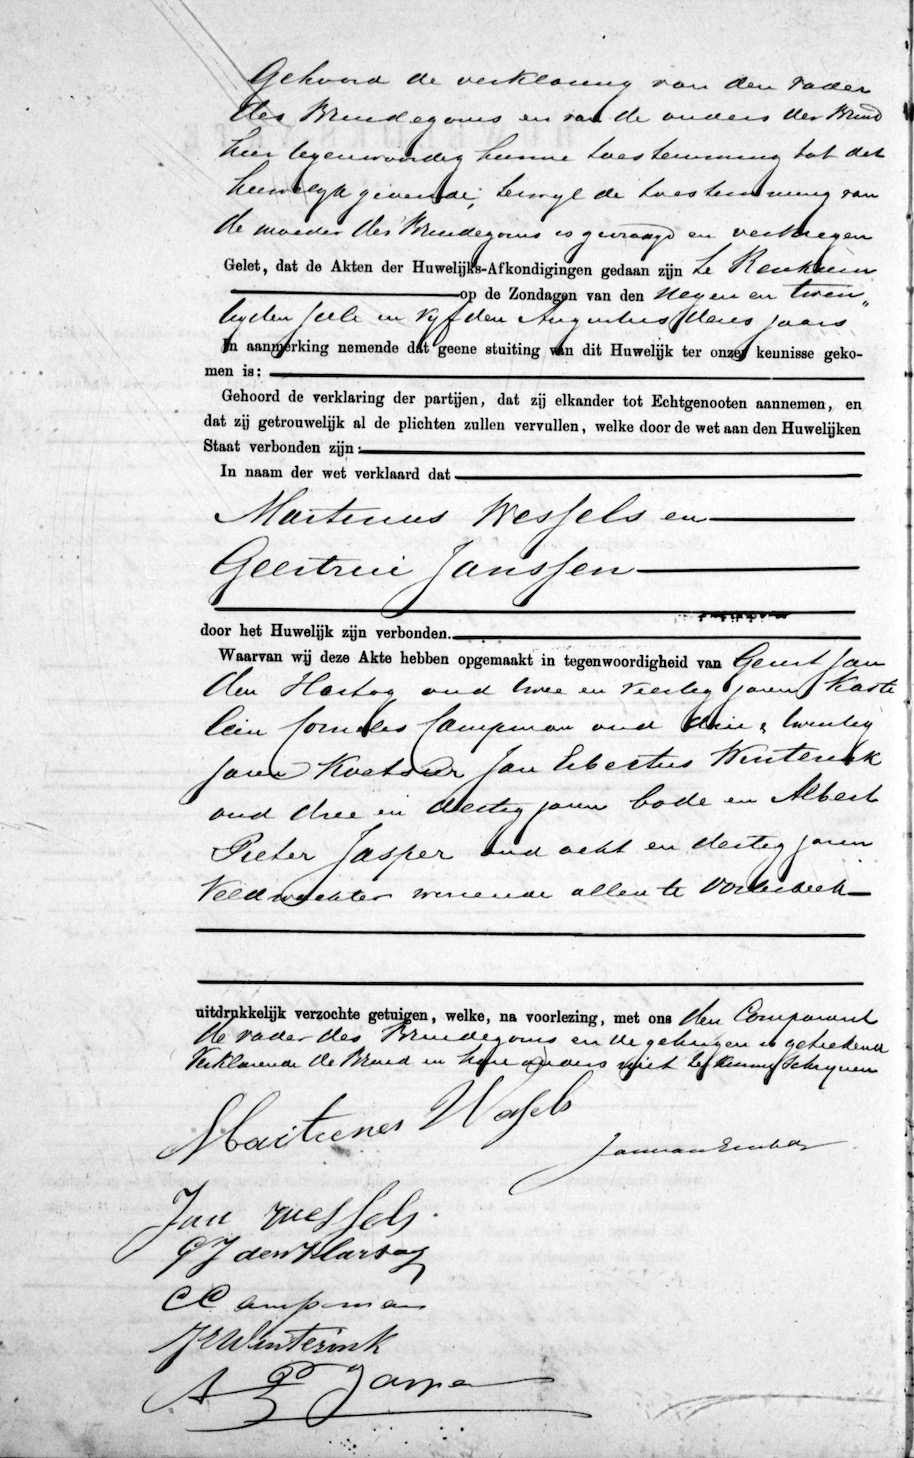 Gehoord de verklaring van den vader
des Bruidegoms en van de ouders der Bruid
hier tegenwoordig hunne toestemming tot dit
huwelijk gevende; terwyl de toestemming van
de moeder des Bruidegoms is gevraagd en verkregen
Gelet, dat de Akten der Huwelijks-Afkondigingen gedaan zijn te Renkum
op de Zondagen van den Negen en twin„
tigsten Juli en Vyfden Augustus dezes jaars
In aanmerking nemende dat geene stuiting van dit Huwelijk ter onzer kennisse geko-
men is:
Gehoord de verklaring der partijen, dat zij elkander tot Echtgenooten aannemen, en
dat zij getrouwelijk al de plichten zullen vervullen, welke door de wet aan den Huwelijken
Staat verbonden zijn:
In naam der wet verklaard dat
Martinus Wessels en
Geertrui Janssen
door het Huwelijk zijn verbonden.
Waarvan wij deze Akte hebben opgemaakt in tegenwoordigheid van Gerrit Jan
den Hartog oud twee en veertig jaren Kaste
lein Cornelis Campman oud drie & twintig
jaren Koetsier Jan Eibertus Winterink
oud drie en dertig jaren bode en Albert
Pieter Jasper oud acht en dertig jaren
Veldwachter wonende allen te Oosterbeek
uitdrukkelijk verzochte getuigen, welke, na voorlezing, met ons den Comparant
de vader des Bruidegoms en de getuigen is geteekend
Verklarende de Bruid en hare ouders niet te kunnen Schryven
Martienes Wessels
Jan Wessels
G J den Hartog
C Campman
J E Winterink
A P Jasper